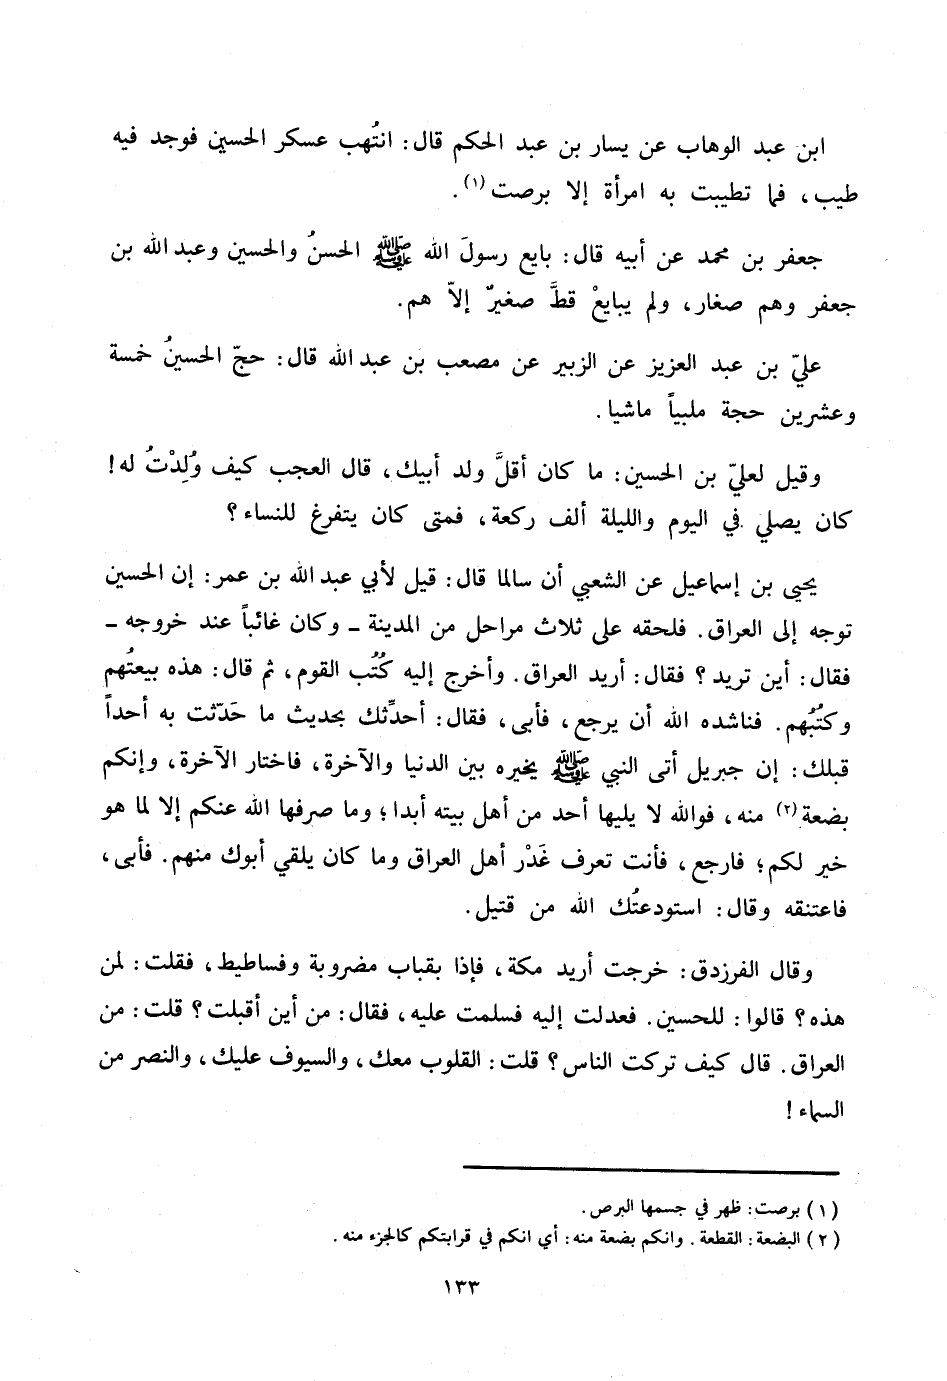 ابن عبد الوهاب عن يسار بن عبد الحكم قال: انتُهب عسكر الحسين فوجد فيه
طيب، فما تطيبت به امرأة إلا برصت(١).
جعفر بن محمد عن أبيه قال: بايع رسولَ الله ﷺ الحسنُ والحسين وعبد الله بن
جعفر وهم صغار، ولم يبايعْ قطَّ صغيرٌ إلاّ هم.
عليّ بن عبد العزيز عن الزبير عن مصعب بن عبد الله قال: حجّ الحسينُ خمسة
وعشرين حجة ملبياً ماشيا.
وقيل لعليّ بن الحسين: ما كان أقلَّ ولد أبيك، قال العجب كيف وُلِدْتُ له!
كان يصلي في اليوم والليلة ألف ركعة، فمتى كان يتفرغ للنساء؟
يحيى بن إسماعيل عن الشعبي أن سالما قال: قيل لأبي عبد الله بن عمر: إن الحسين
توجه إلى العراق. فلحقه على ثلاث مراحل من المدينة ـ وكان غائباً عند خروجه ـ
فقال: أين تريد؟ فقال: أريد العراق. وأخرج إليه كُتُب القوم، ثم قال: هذه بيعتُهم
وكتُبُهم. فناشده الله أن يرجع، فأبى، فقال: أحدِّثك بحديث ما حَدّثت به أحداً
قبلك: إن جبريل أتى النبي ﷺ يخيره بين الدنيا والآخرة، فاختار الآخرة، وإنكم
بضعة(٢) منه، فوالله لا يليها أحد من أهل بيته أبدا؛ وما صرفها الله عنكم إلا لما هو
خير لكم؛ فارجع، فأنت تعرف غَدْر أهل العراق وما كان يلقي أبوك منهم. فأبى،
فاعتنقه وقال: استودعتُك الله من قتيل.
وقال الفرزدق: خرجت أريد مكة، فإذا بقباب مضروبة وفساطيط، فقلت: لمن
هذه؟ قالوا: للحسين. فعدلت إليه فسلمت عليه، فقال: من أين أقبلت؟ قلت: من
العراق. قال كيف تركت الناس؟ قلت: القلوب معك، والسيوف عليك، والنصر من
السماء!
(١) برصت: ظهر في جسمها البرص.
(٢) البضعة: القطعة. وانكم بضعة منه: أي انكم في قرابتكم كالجزء منه.
١٣٣